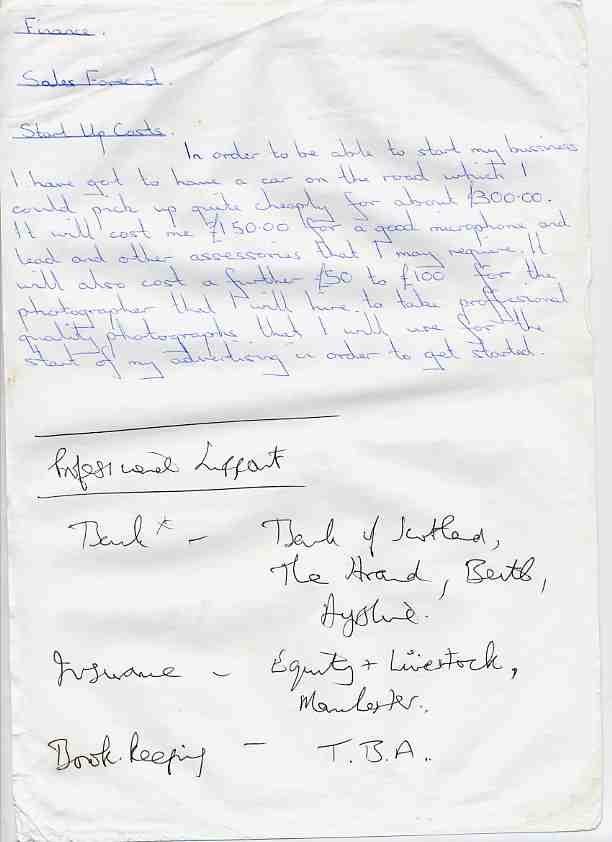 Finance.
Sales Forecast.
Start Up Costs.
In order to be able to start my business
I have got to have a car on the road which I
could pick up quite cheaply for about £300.00.
It will cost me £150.00 for a good microphone and
lead and other assessories that I may require. It
will also cost a further £50 to £100 for the
photographer that I will hire to take proffesional
quality photographs that I will use for the
start of my advertising in order to get started.
Professional Support
Bank * - Bank of Scotland,
The , ,
Ayrshire.
Insurance - Equity + Livestock,
Manchester.
Book-keeping - T.B.A..